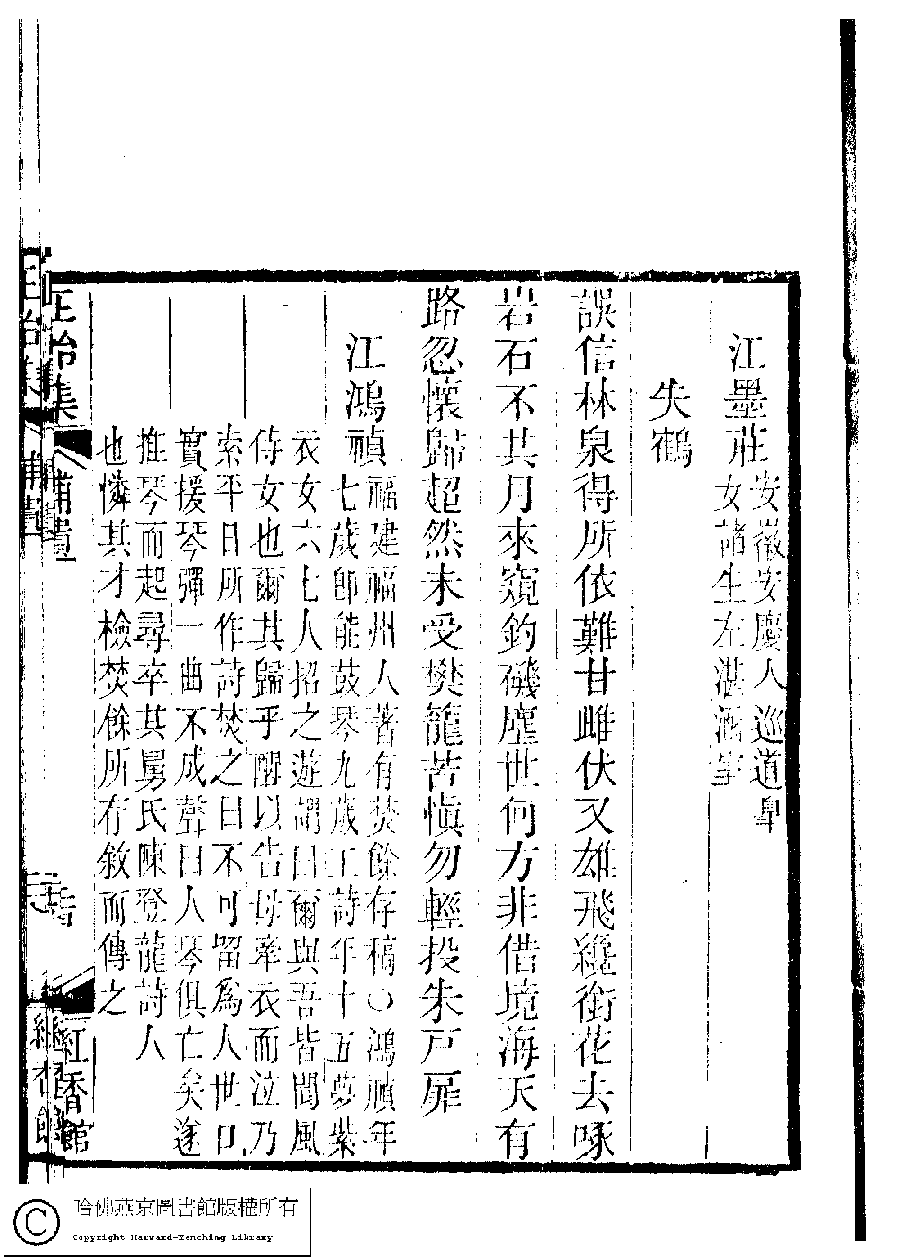 江墨莊
安徽安慶人巡道皐
女諸生左湛涵室
失鶴
誤信林泉得所依難甘雌伏又雄飛纔銜花去啄
岩石不共月來窺釣磯塵世何方非借境海天有
路忽懷歸超然未受樊籠苦愼勿輕投朱戸扉
江鴻禎
福建福州人著有焚餘存稿○鴻禎年
七歲師能鼓琴九歲工詩年十五夢紫
衣女六七人招之遊謂曰爾與吾皆閬風
侍女也爾其歸乎醒以告母牽衣而泣乃
索平日所作詩焚之曰不可留爲人世口
實援琴彈一曲不成聲曰人琴俱亡矣遂
推琴而起尋卒其舅氏陳登龍詩人
也憐其才檢焚餘所存敘而傳之
正始集
補遺
紅香館
哈佛燕京圖書館版權所有
Copyright Harvard-Yenching Library